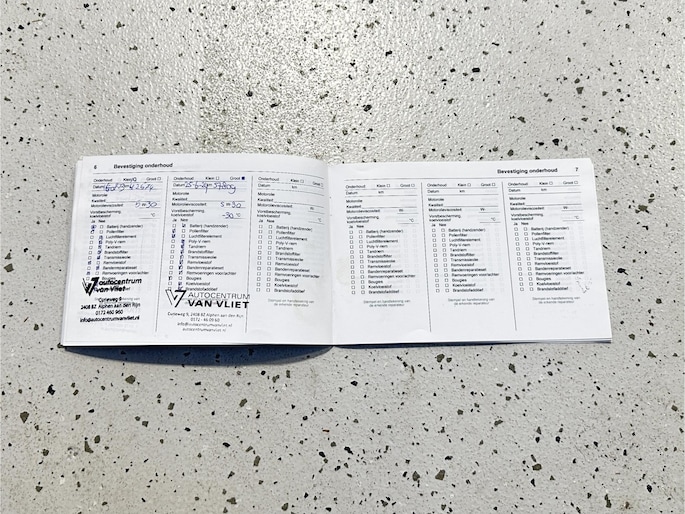 6 Bevestiging onderhoud
Onderhoud Klein Groot
Datum
Motorolie
Kwaliteit
Motorolieviscositeit 5w30
Vorstbescherming
koelvloeistof °C
Ja Nee
Batterij (handzender)
Pollenfilter
Luchtfilterelement
Poly V-riem
Tandriem
Brandstoffilter
Transmissieolie
Remvloeistof
Bandenreparatieset
Remvoeringen voor/achter
Bougies
autocentrum
van Vliet
Ceresweg 9
2408 BZ Alphen aan den Rijn
0172 460 960
info@autocentrumvanvliet.nl
Onderhoud Klein Groot
Datum
Motorolie
Kwaliteit
Motorolieviscositeit 5w30
Vorstbescherming
koelvloeistof -30 °C
Ja Nee
Batterij (handzender)
Pollenfilter
Luchtfilterelement
Poly V-riem
Tandriem
Brandstoffilter
Transmissieolie
Remvloeistof
Bandenreparatieset
Remvoeringen voor/achter
Bougies
Koelvloeistof
AUTOCENTRUM
VAN VLIET
2408 BZ Alphen aan den Rijn
0172 - 46 09 60
info@autocentrumvanvliet.nl
autocentrumvanvliet.nl
Onderhoud Klein Groot
Datum km
Motorolie
Kwaliteit
Motorolieviscositeit W-
Vorstbescherming
koelvloeistof °C
Ja Nee
Batterij (handzender)
Pollenfilter
Luchtfilterelement
Poly V-riem
Tandriem
Brandstoffilter
Transmissieolie
Remvloeistof
Bandenreparatieset
Remvoeringen voor/achter
Bougies
Koelvloeistof
Brandstofadditief
Stempel en handtekening van
de erkende reparateur
Bevestiging onderhoud 7
Onderhoud Klein Groot
Datum km
Motorolie
Kwaliteit
Motorolieviscositeit W-
Vorstbescherming
koelvloeistof °C
Ja Nee
Batterij (handzender)
Pollenfilter
Luchtfilterelement
Poly V-riem
Tandriem
Brandstoffilter
Transmissieolie
Remvloeistof
Bandenreparatieset
Remvoeringen voor/achter
Bougies
Koelvloeistof
Brandstofadditief
Stempel en handtekening van
de erkende reparateur
Onderhoud Klein Groot
Datum km
Motorolie
Kwaliteit
Motorolieviscositeit W-
Vorstbescherming
koelvloeistof °C
Ja Nee
Batterij (handzender)
Pollenfilter
Luchtfilterelement
Poly V-riem
Tandriem
Brandstoffilter
Transmissieolie
Remvloeistof
Bandenreparatieset
Remvoeringen voor/achter
Bougies
Koelvloeistof
Brandstofadditief
Stempel en handtekening van
de erkende reparateur
Onderhoud Klein Groot
Datum km
Motorolie
Kwaliteit
Motorolieviscositeit W-
Vorstbescherming
koelvloeistof °C
Ja Nee
Batterij (handzender)
Pollenfilter
Luchtfilterelement
Poly V-riem
Tandriem
Brandstoffilter
Transmissieolie
Remvloeistof
Bandenreparatieset
Remvoeringen voor/achter
Bougies
Koelvloeistof
Brandstofadditief
Stempel en handtekening van
de erkende reparateur